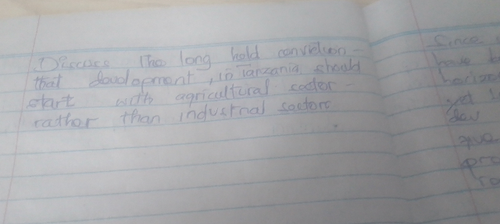 Discuss the long held conviction
that development, in Tanzania should
start with agricultural sector
rather than industrial sector.
Since
have
horizon
yet
dev